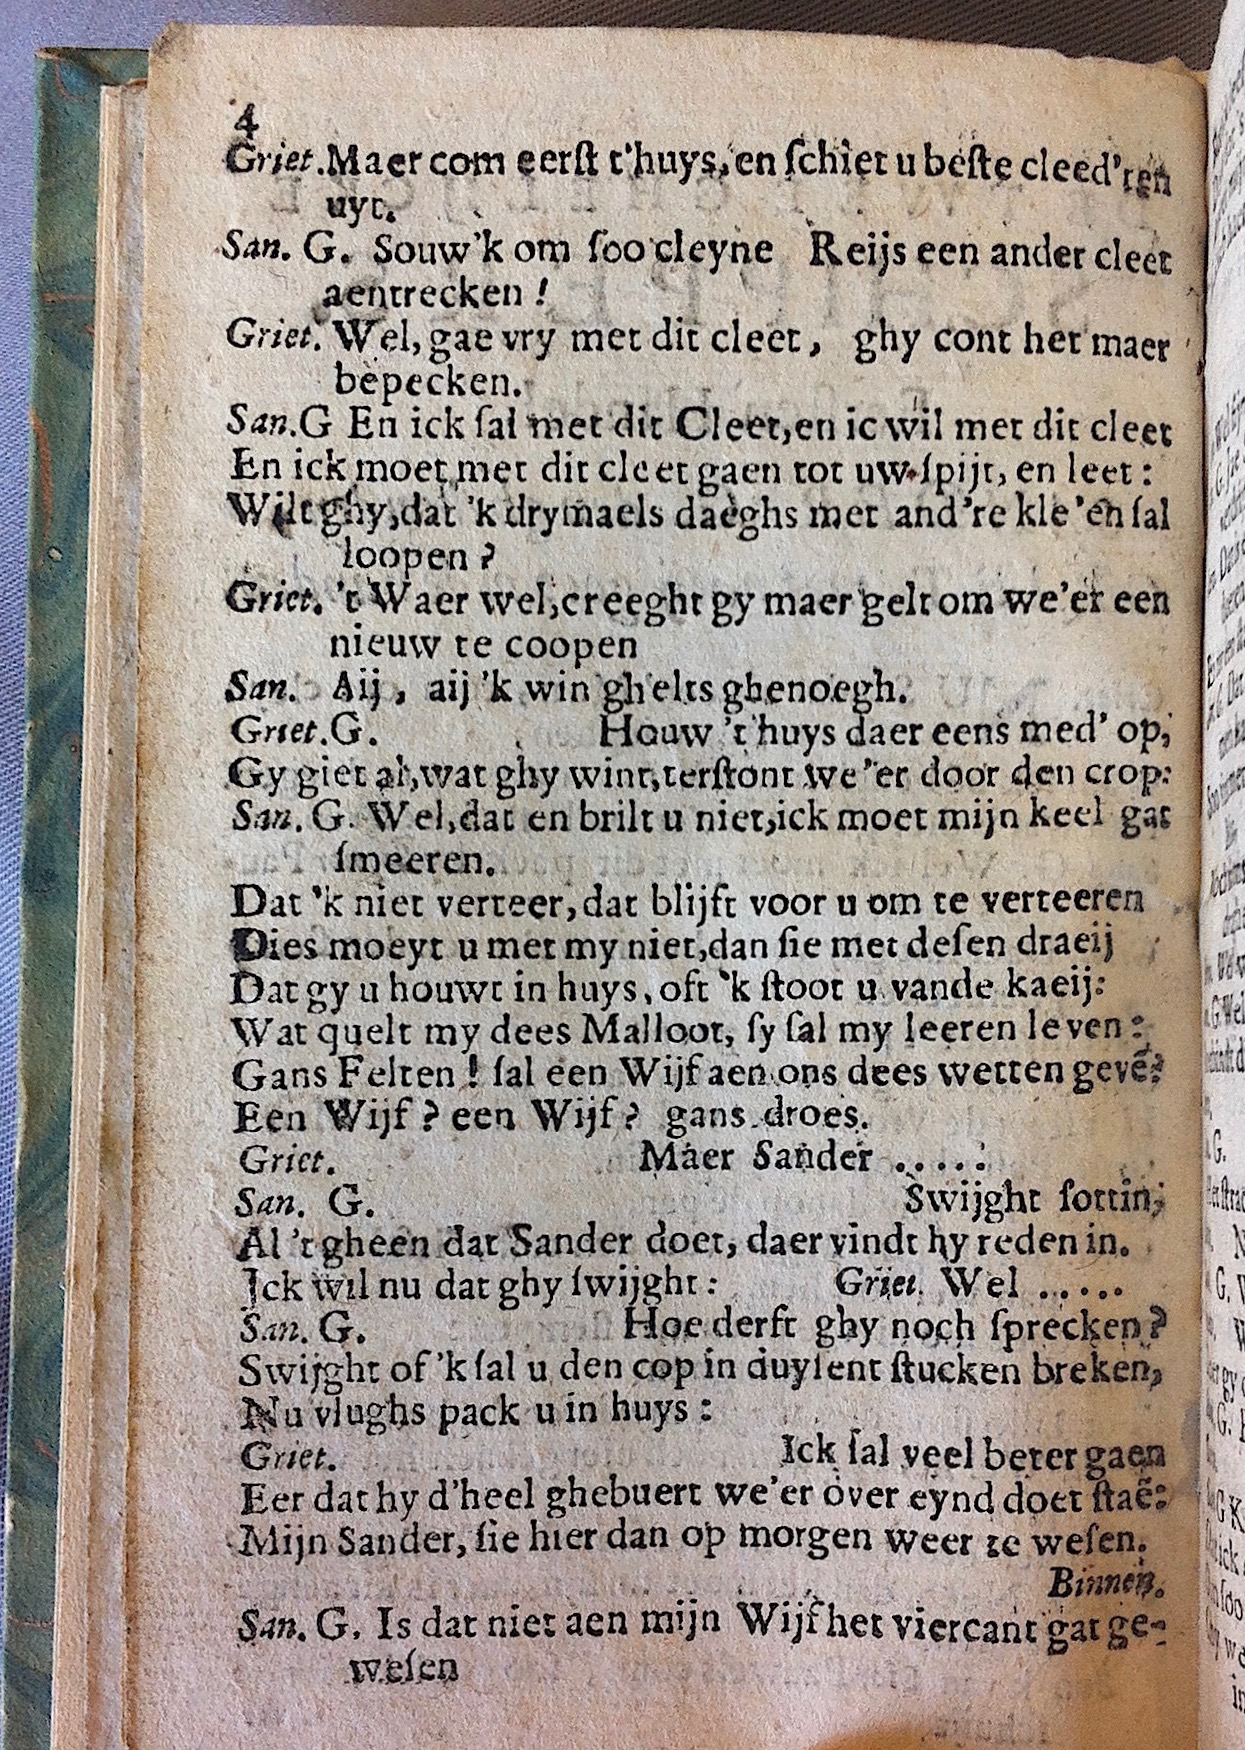 4
Griet. Maer com eerſt t'huys, en ſchiet u beſte cleed'ren
uyt.
San. G. Souw'k om ſoo cleyne Reijs een ander cleet
aentrecken !
Griet. Wel, gae vry met dit cleet, ghy cont het maer
bepecken.
San. G En ick ſal met dit Cleet, en ic wil met dit cleet
En ick moet met dit cleet gaen tot uw ſpijt, en leet :
Wilt ghy, dat 'k drymaels daeghs met and're kle'en ſal
loopen ?
Griet. 't Waer wel, creeght gy maer gelt om we'er een
nieuw te coopen
San. Aij, aij 'k win ghelts ghenoegh.
Griet. G. Houw 't huys daer eens med' op,
Gy giet al, wat ghy wint, terſtont we'er door den crop:
San. G. Wel, dat en brilt u niet, ick moet mijn keel gat
ſmeeren.
Dat 'k niet verteer, dat blijft voor u om te verteeren
Dies moeyt u met my niet, dan ſie met deſen draeij
Dat gy u houwt in huys, oft 'k ſtoot u vande kaeij:
Wat quelt my dees Malloot, ſy ſal my leeren leven:
Gans Felten ! ſal een Wijf aen ons dees wetten gevē?
Een Wijf ? een Wijf ? gans droes.
Griet. Maer Sander .....
San. G. Swijght ſottin;
Al 't gheen dat Sander doet, daer vindt hy reden in.
Ick wil nu dat ghy ſwijght : Griet. Wel .....
San. G. Hoe derft ghy noch ſprecken ?
Swijght of 'k ſal u den cop in duyſent ſtucken breken,
Nu vlughs pack u in huys :
Griet. Ick ſal veel beter gaen
Eer dat hy d'heel ghebuert we'er over eynd doet ſtaē:
Mijn Sander, ſie hier dan op morgen weer te weſen.
Binnen.
San. G. Is dat niet aen mijn Wijf het viercant gat ge-
weſen